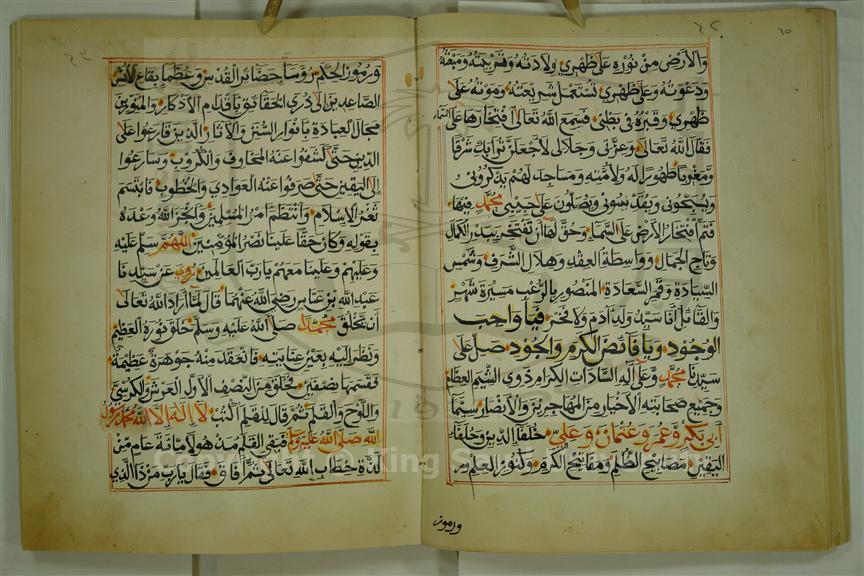 ٦٥
والأرض من نوره على ظهري ولادته وتربيته ومبعثه
ودعوته وعلى ظهري تستعمل شريعته وموته على
ظهري وقبره في بطني فسمع الله تعالى افتخارها على السماء
فقال الله تعالى وعزتي وجلالي لأجعلن ترابك شرقا
ومغربا طهورا له ولأمته ومساجد لهم يذكروني
ويسبحوني ويقدسوني ويصلون على حبيبي محمد فيها
فتم افتخار الأرض على السماء وحق لها أن تفتخر ببدر الكمال
وتاج الجمال وواسطة العقد وهلال الشرف وشمس
السيادة وقمر السعادة المنصور بالرعب مسيرة شهر
والقائل أنا سيد ولد آدم ولا فخر فيا واجب
الوجود ويا فائض الكرم والجود صل على
سيدنا محمد وعلى آله السادات الكرام ذوي الشيم العظام
وجميع صحابته الأخيار من المهاجرين والأنصار سيما
أبي بكر وعمر وعثمان وعلي خلفاء الدين وحلفاء
اليقين مصابيح الظلم ومفاتيح الكرم وكنوز العلم
ورموز
ورموز الحكم رؤساء حضائر القدس وعظماء بقاع الأنس
الصاعدين إلى ذرى الحقائق بأقدام الأذكار والمنورين
مجال العبادة بأنوار السنن والآثار الذين قارعوا على
الدين حتى كشفوا عنه المخاوف والكروب وسارعوا
إلى اليقين حتى صرفوا عنه العوادي والخطوب فابتسم
ثغر الإسلام وانتظم أمر المسلمين وأنجز الله وعده
بقوله وكان حقا علينا نصر المؤمنين اللهم سلم عليه
وعليهم وعلينا معهم يا رب العالمين روي عن سيدنا
عبد الله بن عباس رضي الله عنهما قال لما أراد الله تعالى
أن يخلق محمدا صلى الله عليه وسلم خلق نوره العظيم
ونظر إليه بعين عنايته فانعقد منه جوهرة عظيمة
فقسمها نصفين فخلق من النصف الأول العرش والكرسي
واللوح والقلم ثم قال للقلم اكتب لا إله إلا الله محمد رسول
الله صلى الله عليه وسلم فبقي القلم مدهوشا مائة عام من
لذة خطاب الله تعالى ثم أفاق فقال يا رب من ذا الذي
Copyright © King Saud University